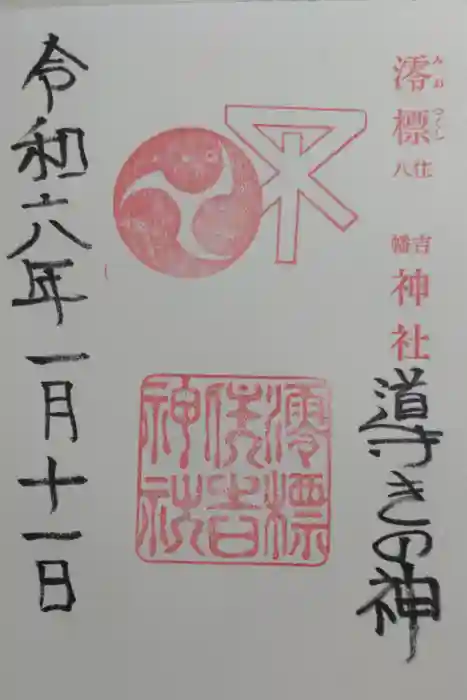 澪標住吉八幡神社
みおつくし
導きの神
澪標
住吉
神社
令和六年一月十一日